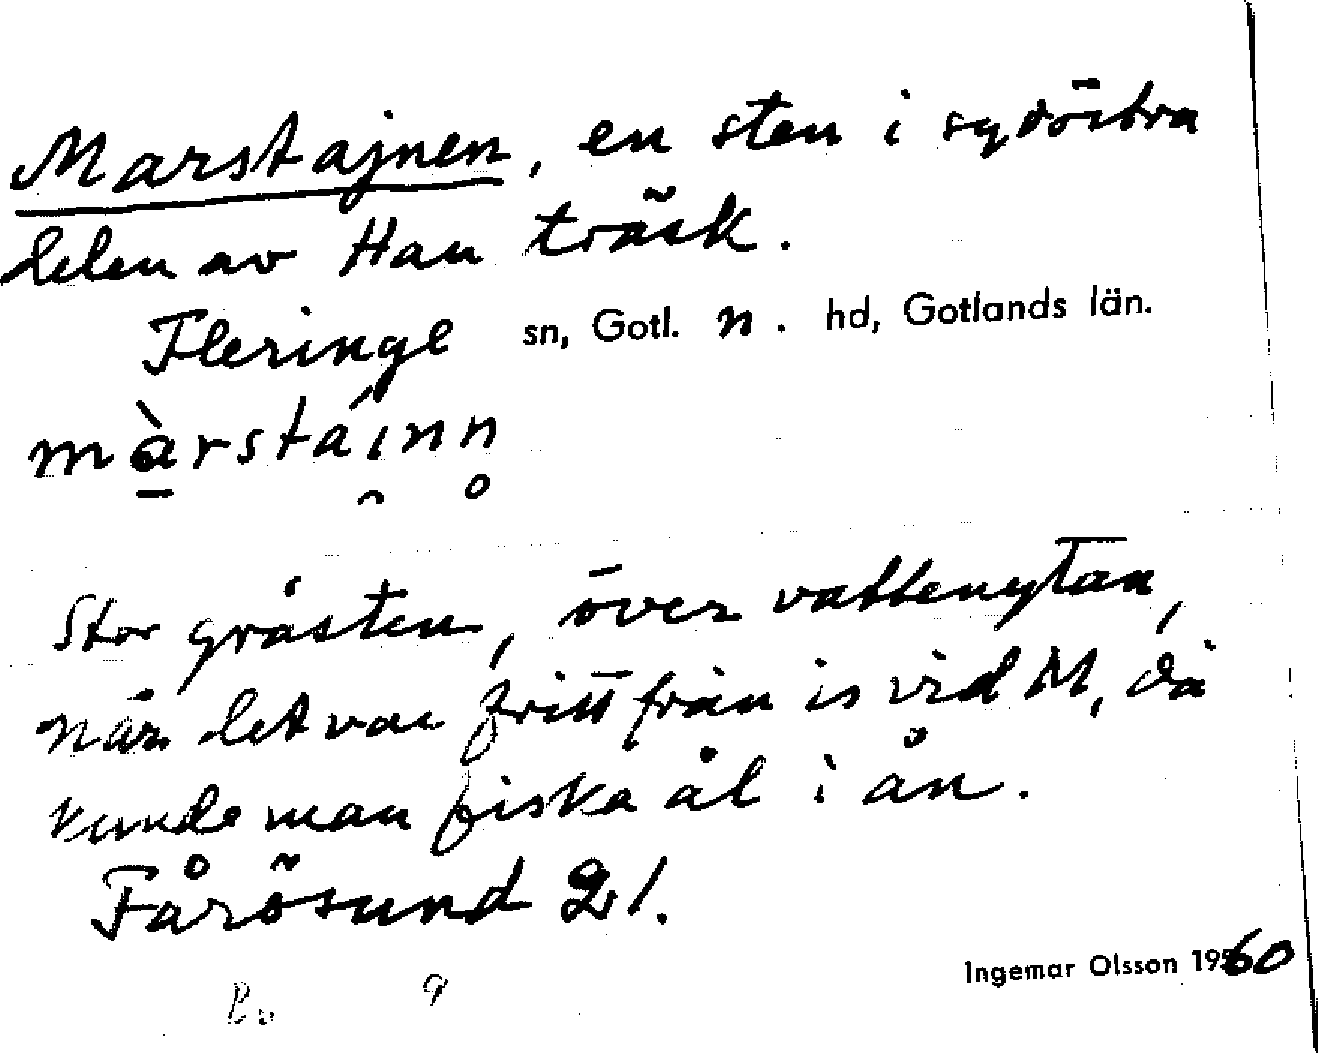 Marstajnen, en sten i sydöstra
delen av Hau träsk.
Fleringe sn, Gotl. n. hd, Gotlands län.
màrstáinn
Stor gråsten, över vattenytan,
när det var fritt från is vid M, då
kunde man fiska ål i ån.
Fårösund 21.
Ingemar Olsson 1960
9